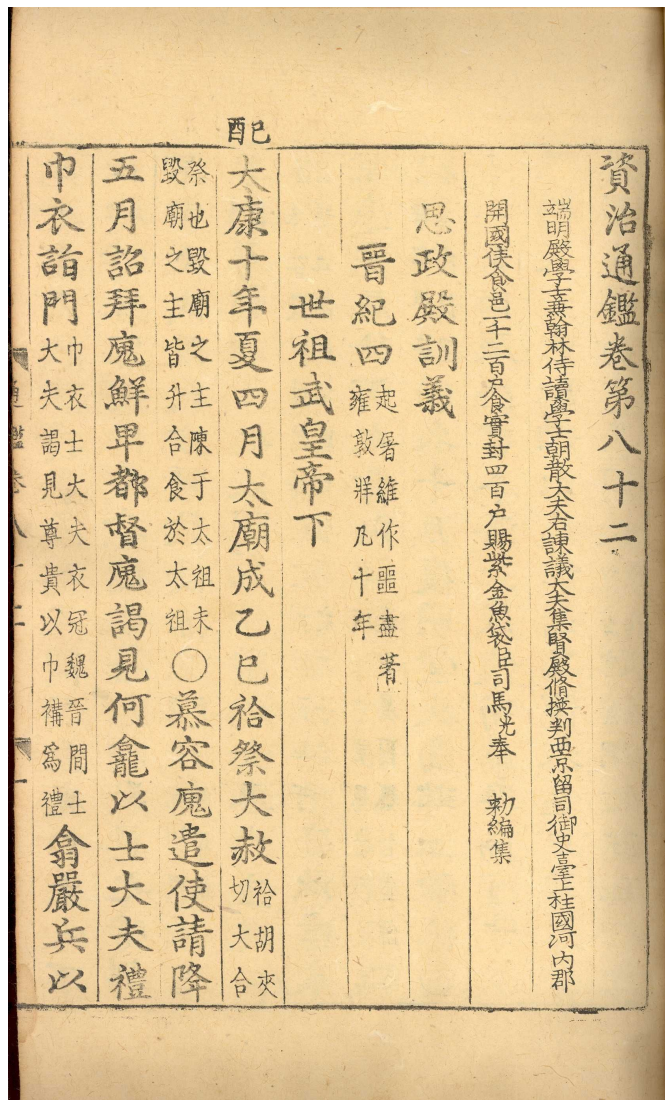 資治通鑑卷第八十二
端明殿學士兼翰林侍讀學士朝散大夫右諫議大夫集賢殿脩撰判西京留司御史臺上柱國河內郡
開國侯食邑一千二百戶食實封四百戶賜紫金魚袋臣司馬光奉　勑編集
思政殿訓義
晉紀四起屠維作噩盡著雍敦牂凡十年
世祖武皇帝下
己酉
太康十年夏四月太廟成乙巳祫祭大赦祫胡夾切大合
祭也毀廟之主陳于太祖未毀廟之主皆升合食於太祖〇慕容廆遣使請降
五月詔拜廆鮮卑都督廆謁見何龕以士大夫禮
巾衣詣門巾衣士大夫衣冠魏晉間士大夫謁見尊貴以巾褠爲禮翕嚴兵以
通鑑卷八十二　一